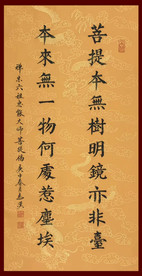 菩提本無樹明鏡亦非臺
本來無一物何處惹塵埃
六祖惠能大师菩提偈